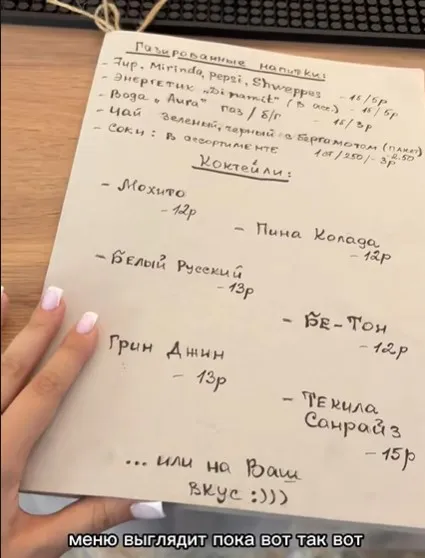 Газированные напитки:
- 7up, Mirinda, pepsi, Shweppes - 1б/5р
- Энергетик „Dinamit" (в асс.) - 1б/5р
- Вода „Aura" газ / б/г - 1б/3р
- Чай зеленый, черный с бергамотом (пакет) 2.50
- Соки: в ассортименте 1ст/250/- 3р
Коктейли:
- Мохито
- 12р
- Пина Колада
- 12р
- Белый Русский
- 13р
- Бе-Тон
- 12р
Грин Джин
- 13р
- Текила
Санрайз
- 15р
... или на Ваш
вкус :)))
меню выглядит пока вот так вот